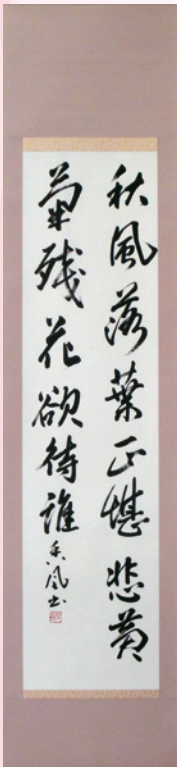 秋風落葉正堪悲黄
菊残花欲待誰
香風書